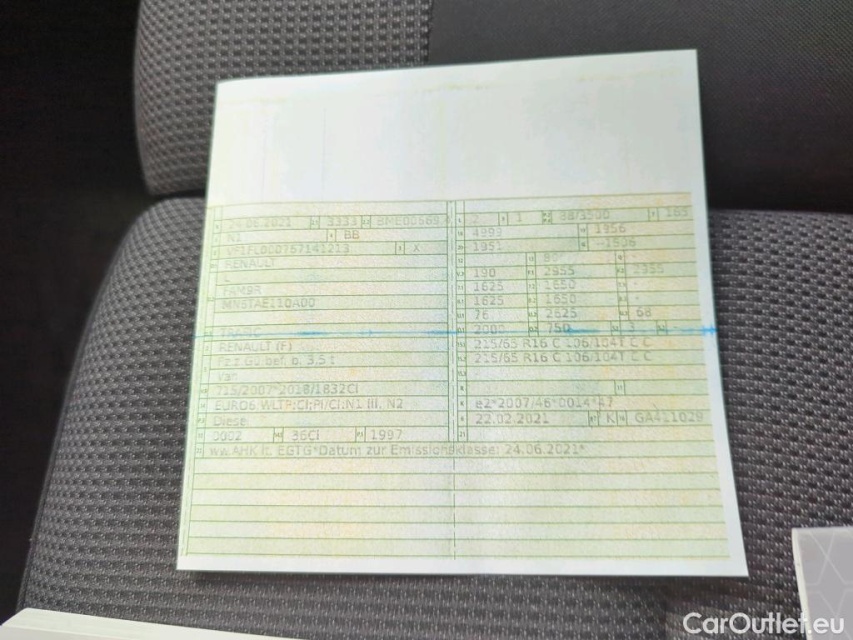 24.06.2021 3333 BME00689 2 1 88/3500 165
N1 BB 4999 1956
VF1FL000767141213 X 1951
RENAULT
L 190 2955 2355
FAMSR 1625 1650 -
MNBTAE110A00 1625 1650 -
76 2625 68
TRAFIC 2000 750 3
RENAULT (F) 215/65 R16 C 106/104T C C
Fz.z.Gü.bef. b. 3,5 t 215/65 R16 C 106/104T C C
Van
715/2007*2018/1832CI
EURO6 WLTP;CI;PI/CI;N1 III, N2 e2*2007/46*0014*47
Diesel 22.02.2021 K GA411029
0002 36CI 1997
ww.AHK lt. EGTG*Datum zur Emissionsklasse: 24.06.2021*
CarOutlet.eu